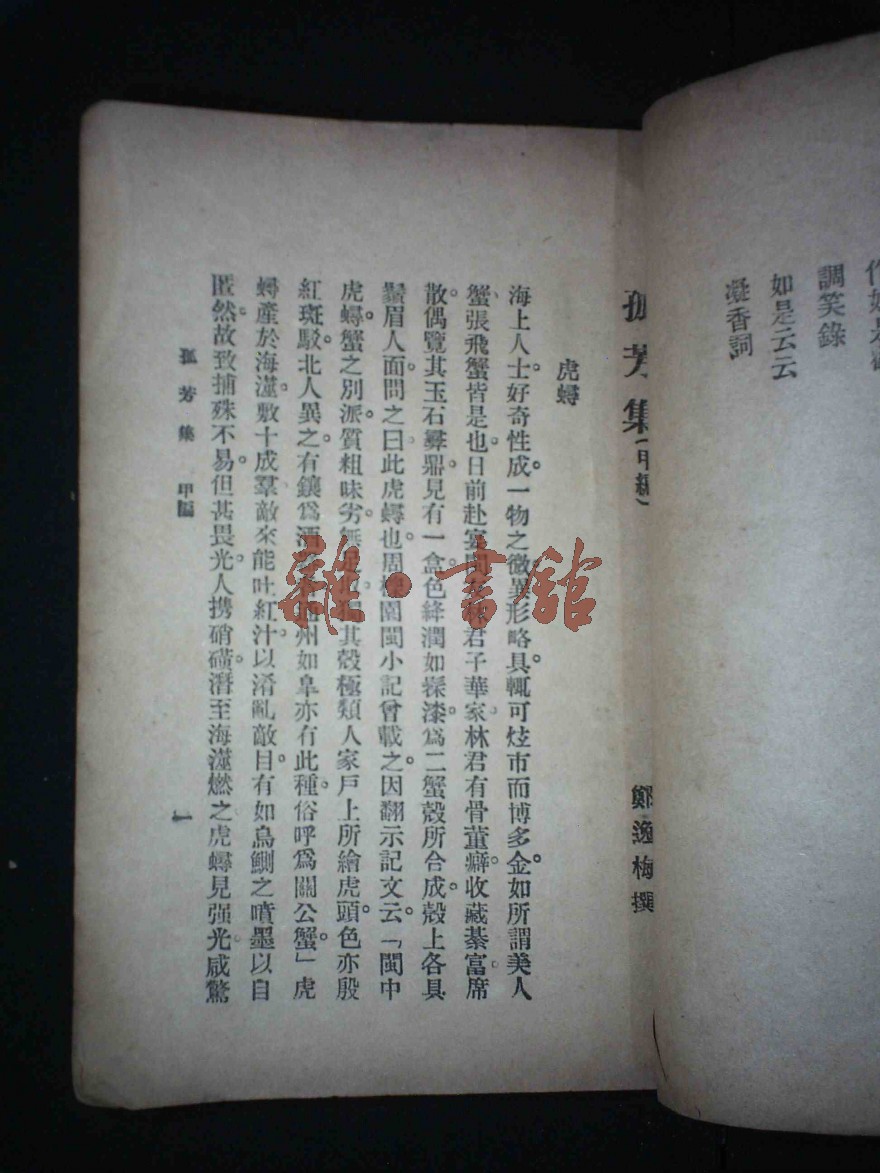 作如是觀
調笑錄
如是云云
凝香詞
孤芳集(甲編)
鄭逸梅撰
虎蟳
海上人士好奇性成。一物之微異形略具。輒可炫市而博多金。如所謂美人
蟹、張飛蟹皆是也。日前赴宴
君子華家。林君有骨董癖。收藏綦富。席
散。偶覽其玉石彝鼎。見有一盒。色絳潤如髹漆。爲二蟹殼所合成。殼上各具
鬚眉人面。問之。曰此虎蟳也。周櫟園閩小記曾載之。因翻示記文云。「閩中
虎蟳。蟹之別派。質粗味劣。無足取。獨其殼極類人家戶上所繪虎頭。色亦殷
紅斑駁。北人異之。有鑲爲酒
州如臯亦有此種。俗呼爲關公蟹。」虎
蟳產於海濱。數十成羣。敵來能吐紅汁以淆亂敵目。有如烏鰂之噴墨以自
匿。然故致捕殊不易。但甚畏光。人携硝磺潛至海濱燃之。虎蟳見强光。咸驚
孤芳集 甲編
一
雜·書館